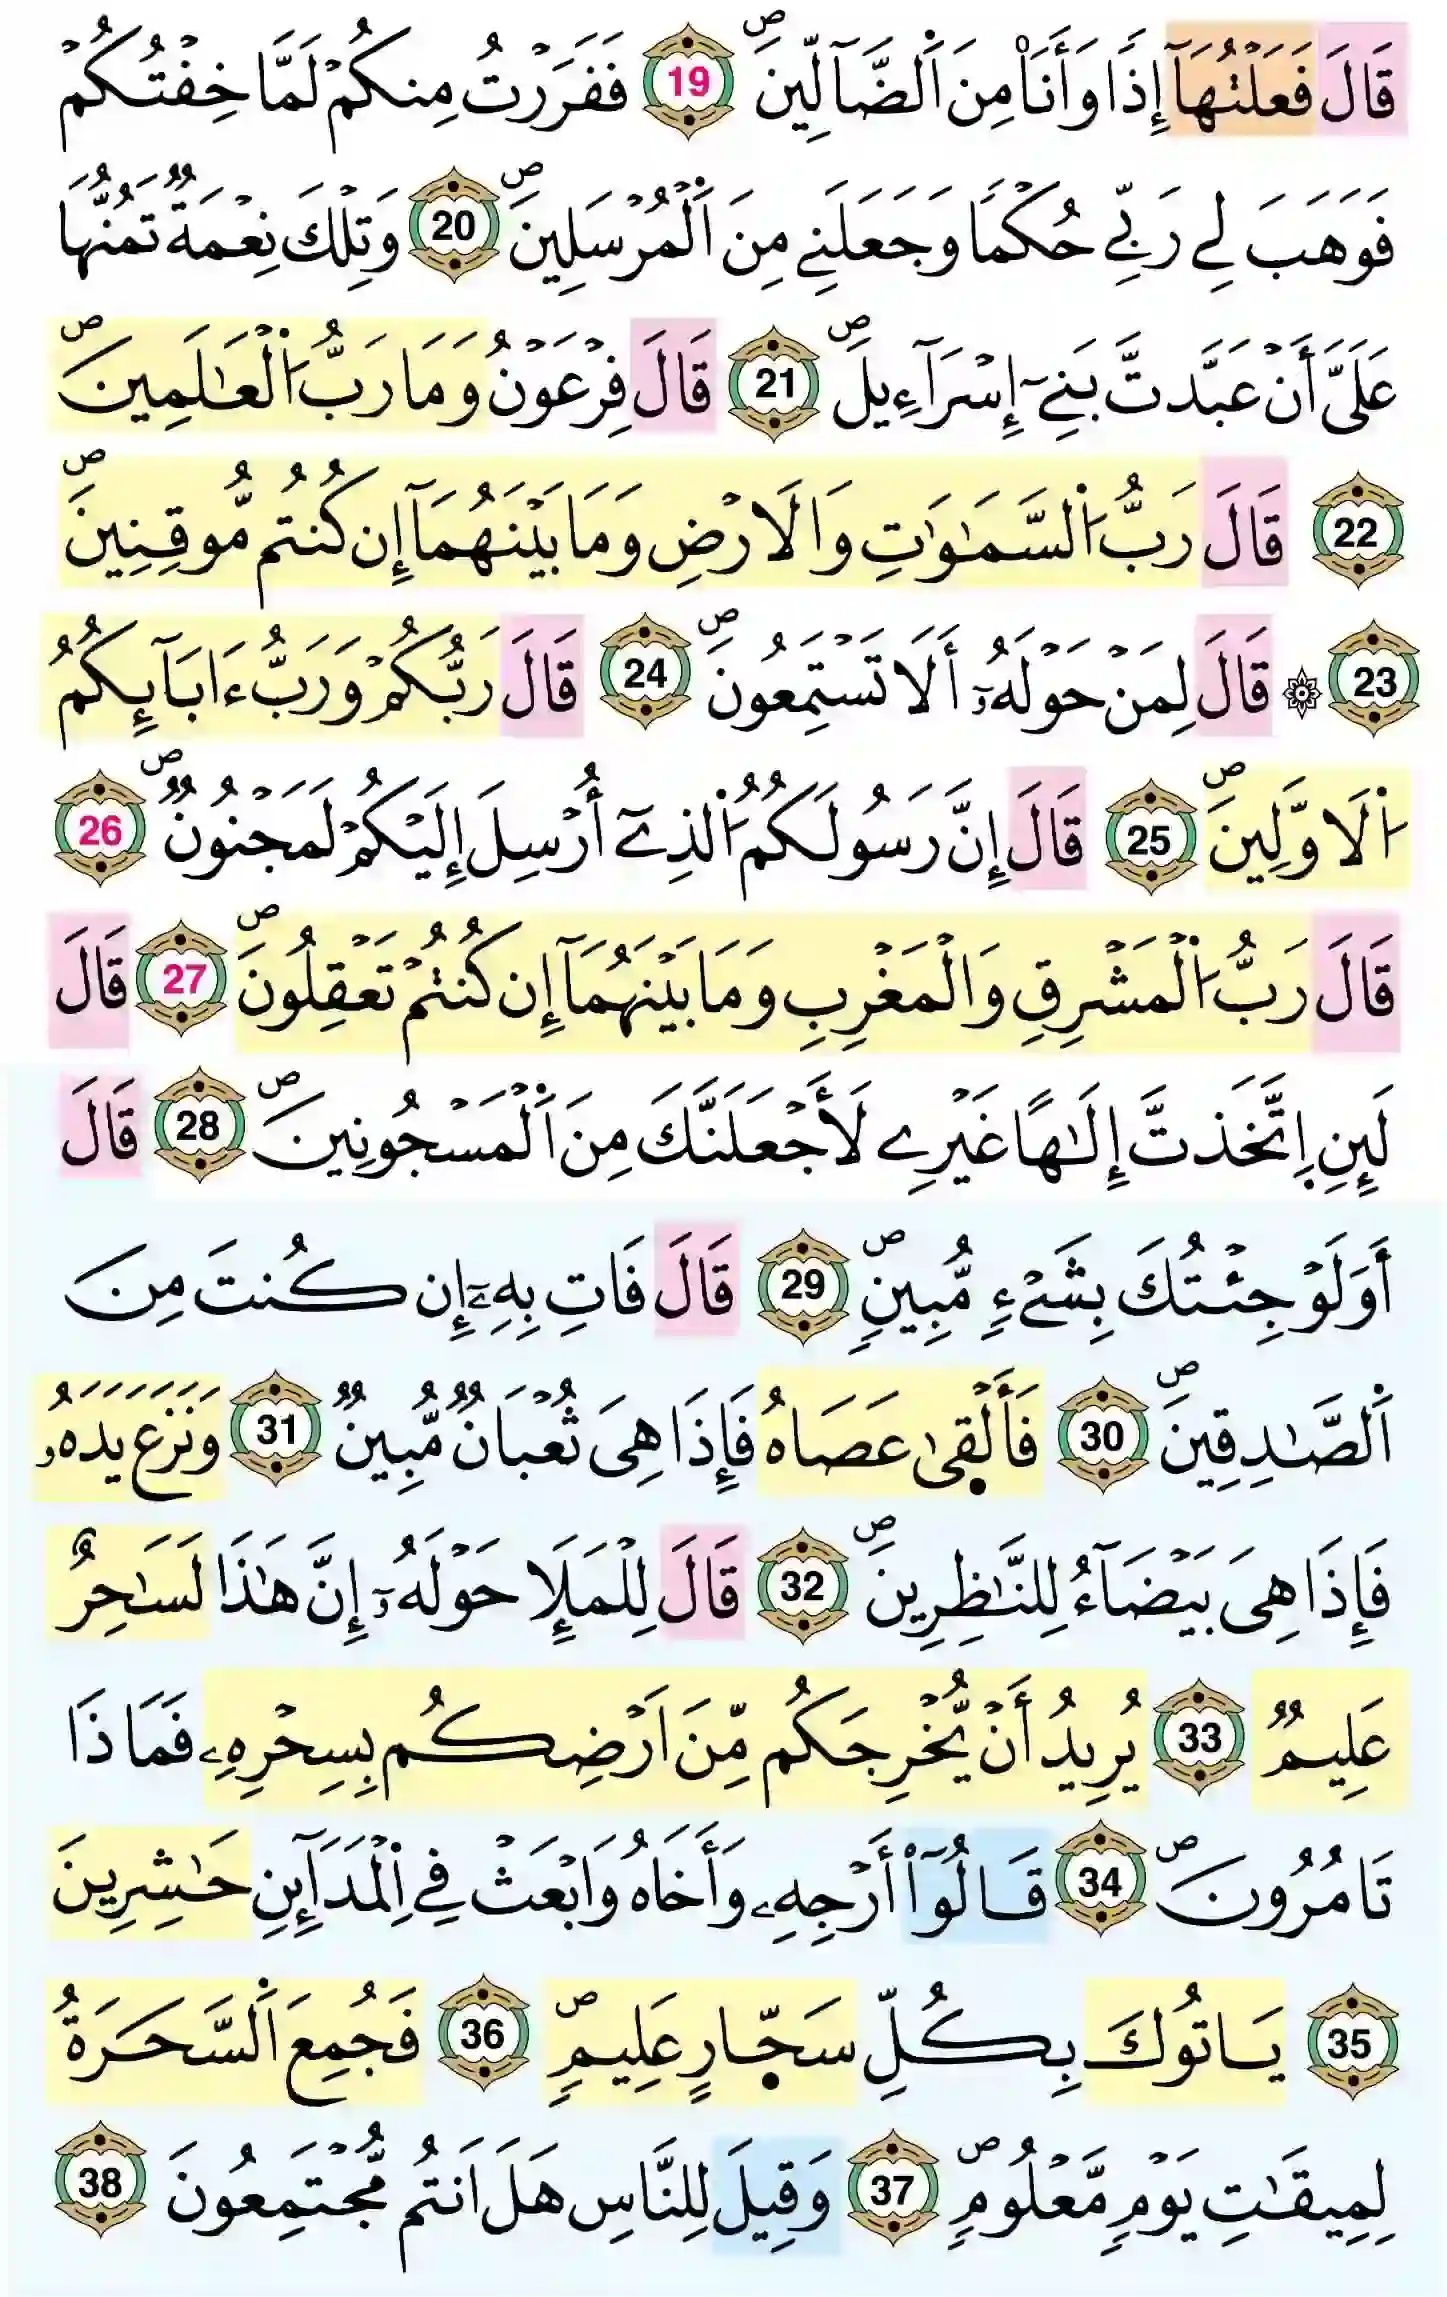 قَالَ فَعَلْتُهَآ إِذًا وَأَنَا۠ مِنَ اَ۬لضَّآلِّينَۖ 19 فَفَرَرْتُ مِنكُمْ لَمَّا خِفْتُكُمْ
فَوَهَبَ لِے رَبِّے حُكْمًا وَجَعَلَنِے مِنَ اَ۬لْمُرْسَلِينَۖ 20 وَتِلْكَ نِعْمَةٌ تَمُنُّهَا
عَلَيَّ أَنْ عَبَّدتَّ بَنِےٓ إِسْرَآءِيلَۖ 21 قَالَ فِرْعَوْنُ وَمَا رَبُّ اُ۬لْعَٰلَمِينَۖ
22 قَالَ رَبُّ اُ۬لسَّمَٰوَٰتِ وَالَارْضِ وَمَا بَيْنَهُمَآ إِن كُنتُم مُّوقِنِينَۖ
23 ۞ قَالَ لِمَنْ حَوْلَهُۥٓ أَلَا تَسْتَمِعُونَۖ 24 قَالَ رَبُّكُمْ وَرَبُّ ءَابَآئِكُمُ
اُ۬لَاوَّلِينَۖ 25 قَالَ إِنَّ رَسُولَكُمُ اُ۬لذِےٓ أُرْسِلَ إِلَيْكُمْ لَمَجْنُونٌۖ 26
قَالَ رَبُّ اُ۬لْمَشْرِقِ وَالْمَغْرِبِ وَمَا بَيْنَهُمَآ إِن كُنتُمْ تَعْقِلُونَۖ 27 قَالَ
لَئِنِ اِ۪تَّخَذتَّ إِلَٰهًا غَيْرِے لَأَجْعَلَنَّكَ مِنَ اَ۬لْمَسْجُونِينَۖ 28 قَالَ
أَوَلَوْ جِئْتُكَ بِشَےْءٖ مُّبِينٖۖ 29 قَالَ فَاتِ بِهِۦٓ إِن كُنتَ مِنَ
اَ۬لصَّٰدِقِينَۖ 30 فَأَلْق۪ىٰ عَصَاهُ فَإِذَا هِىَ ثُعْبَانٌ مُّبِينٌ 31 وَنَزَعَ يَدَهُۥ
فَإِذَا هِىَ بَيْضَآءُ لِلنَّٰظِرِينَۖ 32 قَالَ لِلْمَلَإِ حَوْلَهُۥٓ إِنَّ هَٰذَا لَسَٰحِرٌ
عَلِيمٌ 33 يُرِيدُ أَنْ يُّخْرِجَكُم مِّنَ اَرْضِكُم بِسِحْرِهِۦ فَمَاذَا
تَامُرُونَۖ 34 قَالُوٓا۟ أَرْجِهِۦ وَأَخَاهُ وَابْعَثْ فِے اِ۬لْمَدَآئِنِ حَٰشِرِينَ
35 يَاتُوكَ بِكُلِّ سَحّ۪ارٍ عَلِيمٖۖ 36 فَجُمِعَ اَ۬لسَّحَرَةُ
لِمِيقَٰتِ يَوْمٖ مَّعْلُومٖۖ 37 وَقِيلَ لِلنَّاسِ هَلَ اَنتُم مُّجْتَمِعُونَ 38